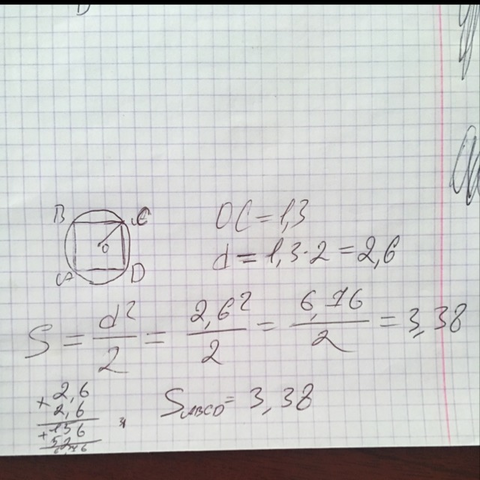 B C
O
A D
OC = 1,3
d = 1,3 · 2 = 2,6
S = d²/2 = 2,6²/2 = 6,76/2 = 3,38
× 2,6
2,6
+ 156
52
S ABCD = 3,38